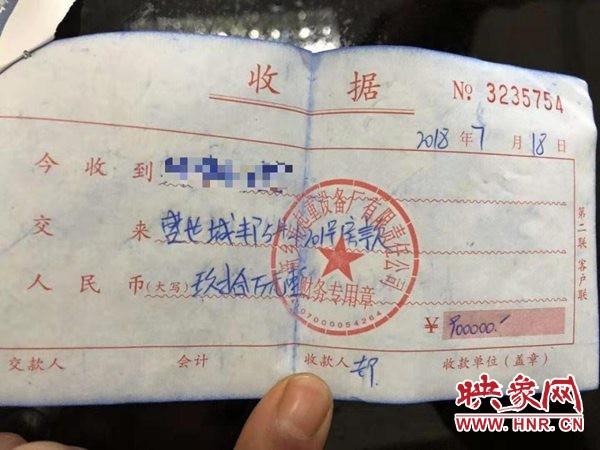 收 据
№ 3235754
2018 年 7 月 18 日
今 收 到
交 来 盛世城邦 5# 201号房款
人 民 币 (大写) 玖拾万元整
¥ 900000.-
交款人 会计 收款人 收款单位(盖章)
第二联 客户联
起重设备厂有限责任公司
财务专用章
07000054264
映象网
WWW.HNR.CN